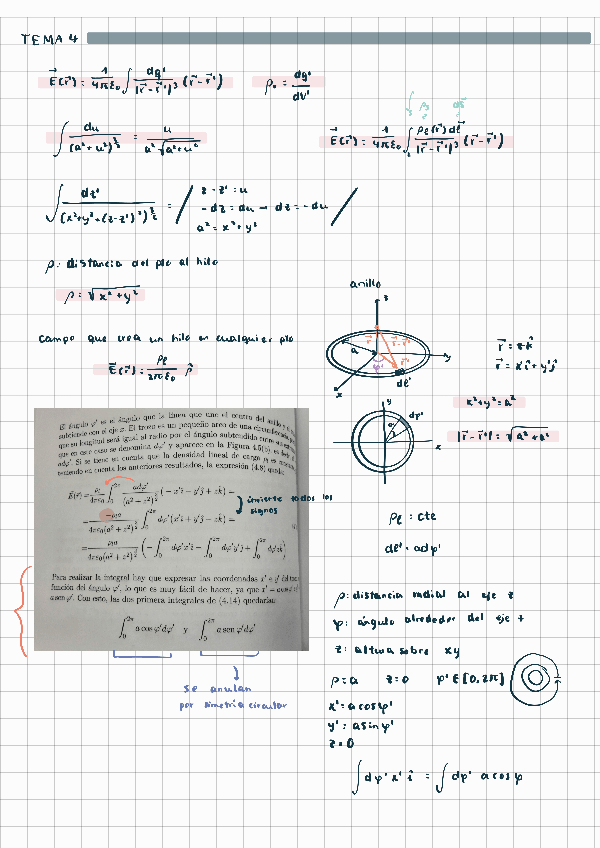 TEMA 4
E⃗(r⃗) = 1/4πε₀ ∫ dq'/|r⃗-r⃗'|³ (r⃗-r⃗')
ρ. = dq'/dv'
∫ du/(a²+u²)^{3/2} = u/a²√a²+u²
E⃗(r⃗) = 1/4πε₀ ∫ ρℓ(r⃗') dℓ⃗/|r⃗-r⃗'|³ (r⃗-r⃗')
∫ dz'/(x²+y²+(z-z')²)^{3/2} =
z-z' = u
-dz = du → dz = -du
a² = x²+y²
ρ: distancia del pto al hilo
ρ = √x²+y²
campo que crea un hilo en cualquier pto
E⃗(r⃗) = ρℓ/2πε₀ ρ̂
anillo
z
a
r⃗
r⃗-r⃗'
r⃗'
φ'
y
x
dℓ'
r⃗ = zk̂
r⃗' = x'î+y'ĵ
x²+y² = a²
|r⃗-r⃗'| = √a²+z²
y
dρ'
x
El ángulo φ' es el ángulo que la línea que une el centro del anillo
subtiende con el eje x. El trozo es un pequeño arco de una circunferencia
que su longitud será igual al radio por el ángulo subtendido
que en este caso se denomina dφ' y aparece en la Figura 4.5(b), es decir
adφ'. Si se tiene en cuenta que la densidad lineal de carga ρℓ es constante
teniendo en cuenta los anteriores resultados, la expresión (4.8) queda:
E⃗(r⃗) = ρℓ/4πε₀ ∫₀^{2π} adφ'/(a²+z²)^{3/2} (-x'î - y'ĵ + zk̂) =
= -ρℓa/4πε₀(a²+z²)^{3/2} ∫₀^{2π} dφ'(x'î + y'ĵ - zk̂) =
= ρℓa/4πε₀(a²+z²)^{3/2} (-∫₀^{2π} dφ'x'î - ∫₀^{2π} dφ'y'ĵ + ∫₀^{2π} dφ'zk̂)
invierte todos los
signos
Para realizar la integral hay que expresar las coordenadas x' e y' del
función del ángulo φ', lo que es muy fácil de hacer, ya que x' = a cos φ'
a sen φ'. Con esto, las dos primera integrales de (4.14) quedarían:
∫₀^{2π} a cos φ'dφ' y ∫₀^{2π} a sen φ'dφ'
se anulan
por simetría circular
ρℓ = cte
dℓ' = adρ'
ρ: distancia radial al eje z
φ: ángulo alrededor del eje z
z: altura sobre xy
ρ = a z = 0 ρ' ∈ [0,2π]
x' = a cosφ'
y' = a sinφ'
z = 0
∫ dφ' x' î = ∫ dρ' a cosφ